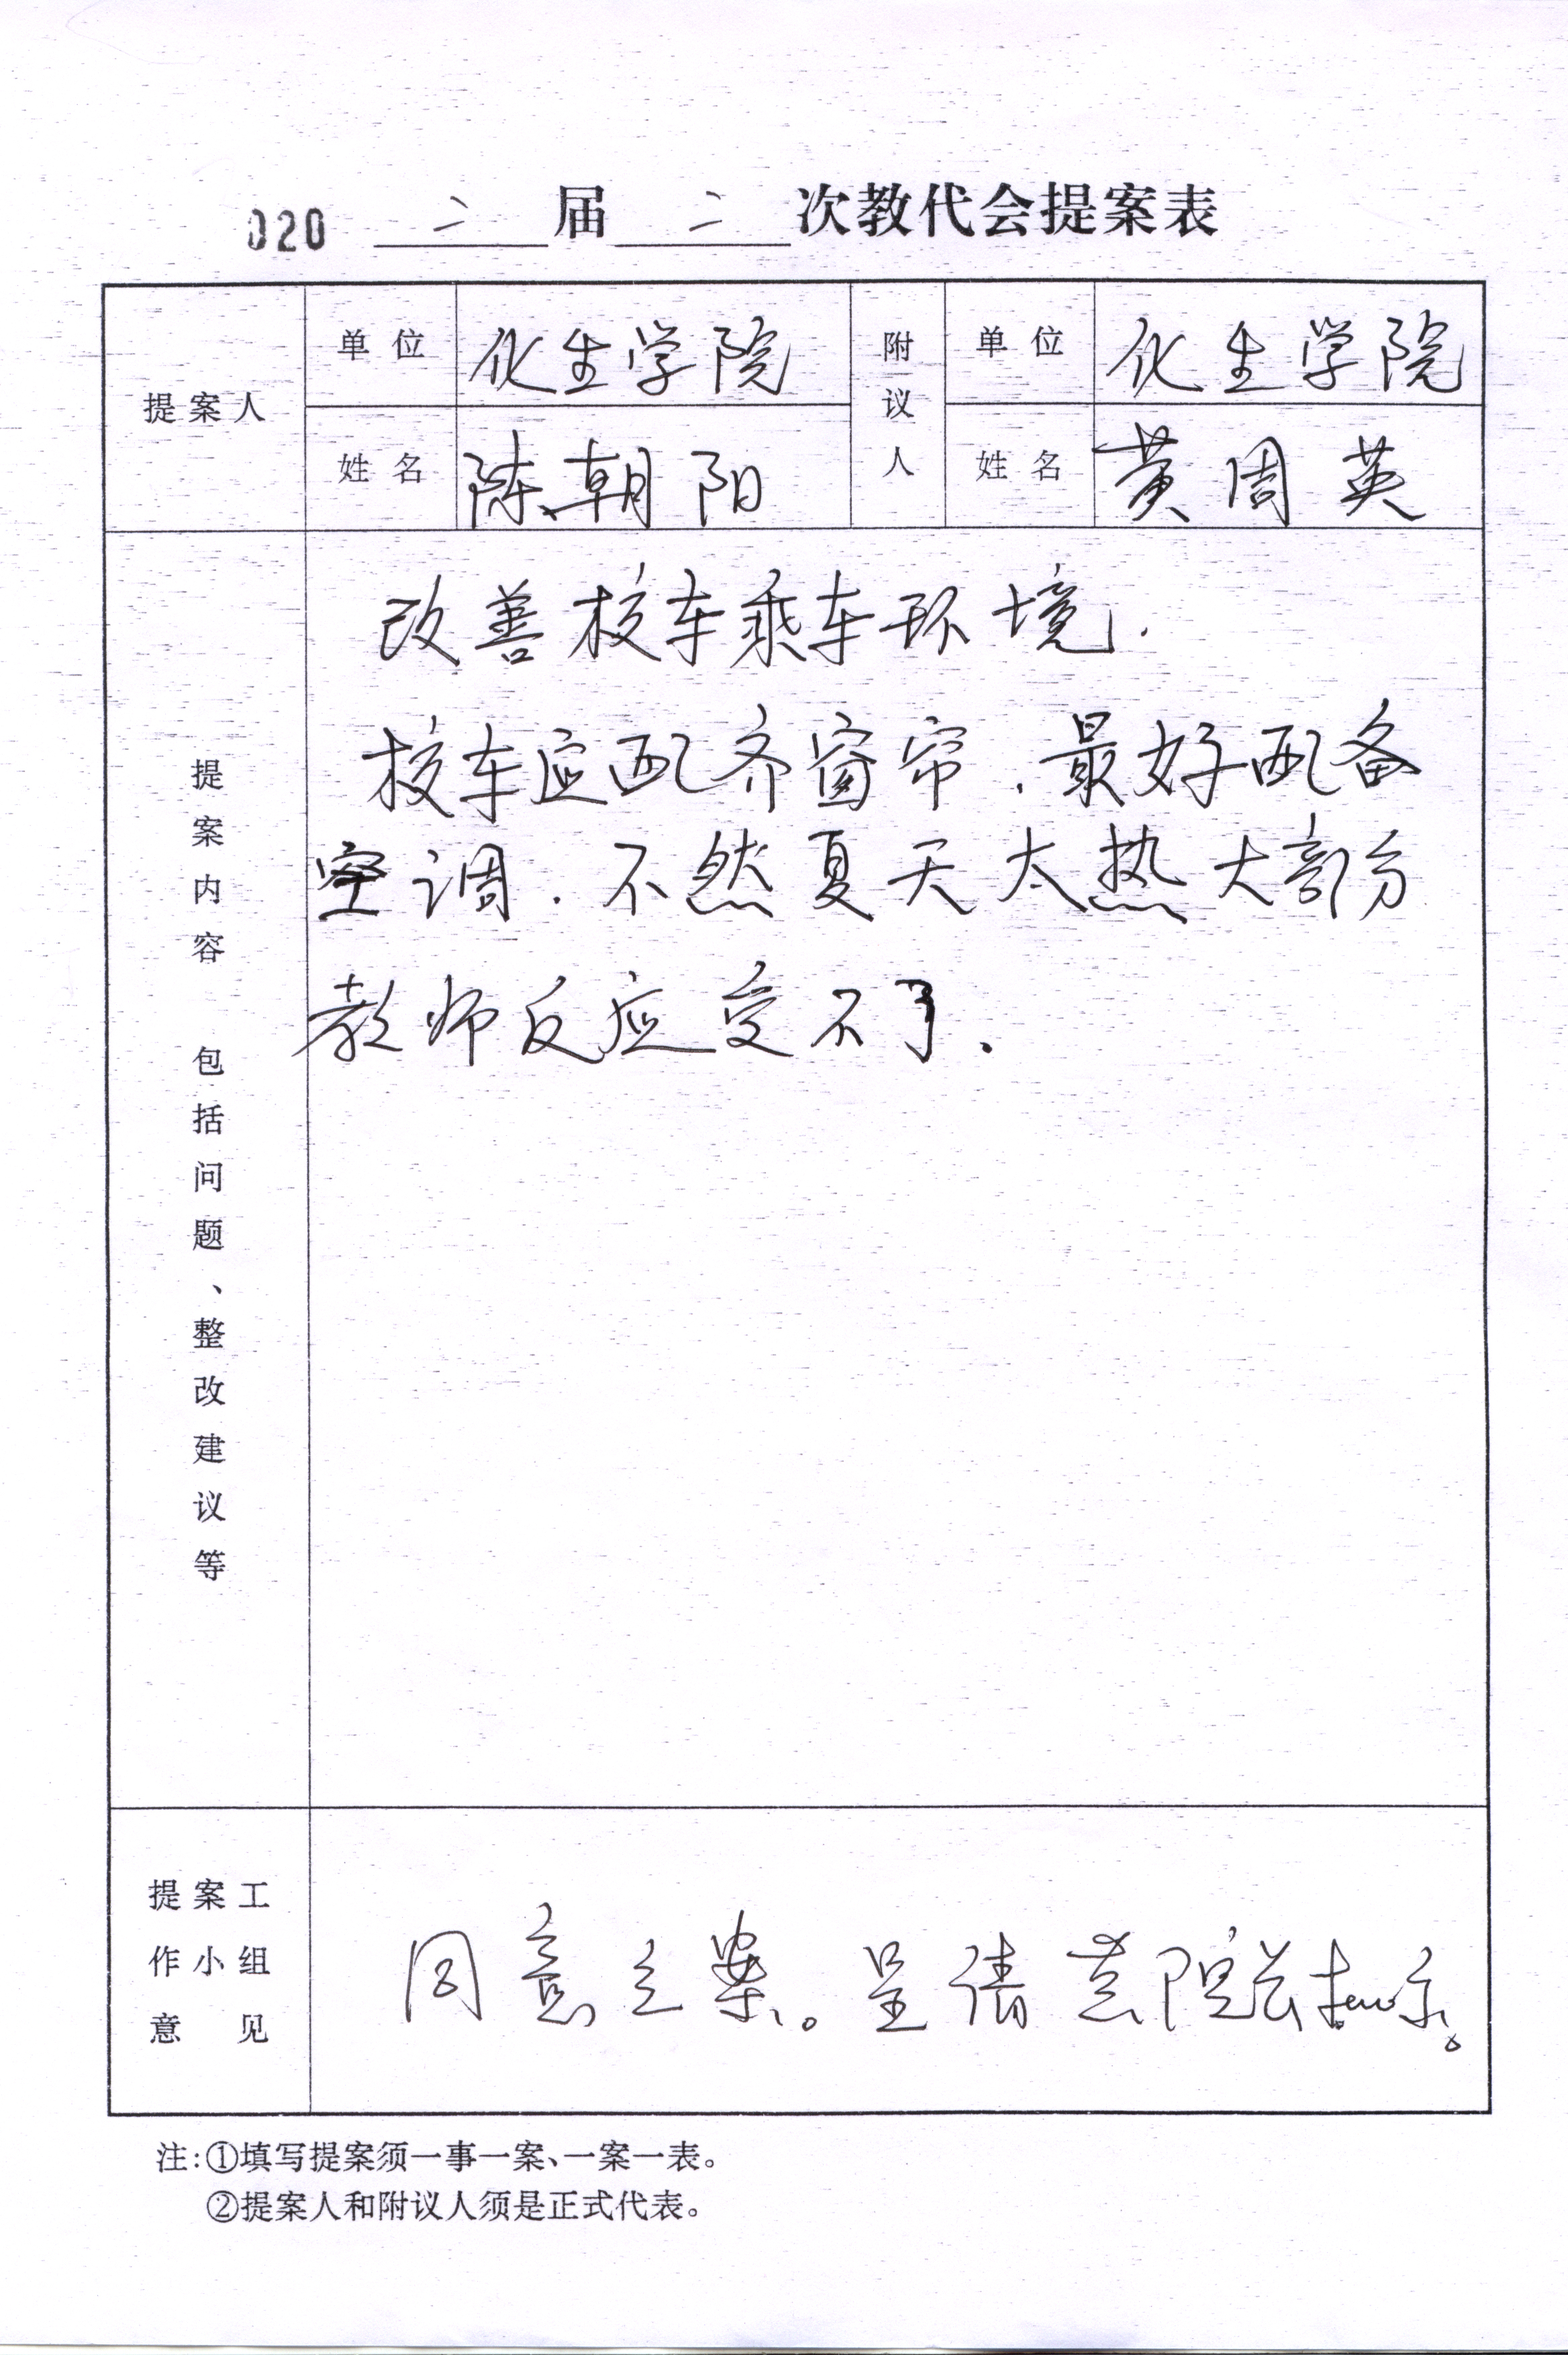 020 二 届 二 次教代会提案表
提案人 单位 化生学院 附议人 单位 化生学院
姓名 陈朝阳 姓名 黄周英
提案内容 包括问题、整改建议等
改善校车乘车环境.
校车应配齐窗帘.最好配备
空调.不然夏天太热大部分
教师反应受不了.
提案工
作小组
意见
同意立案。呈请黄院长批示。
注:①填写提案须一事一案、一案一表。
②提案人和附议人须是正式代表。